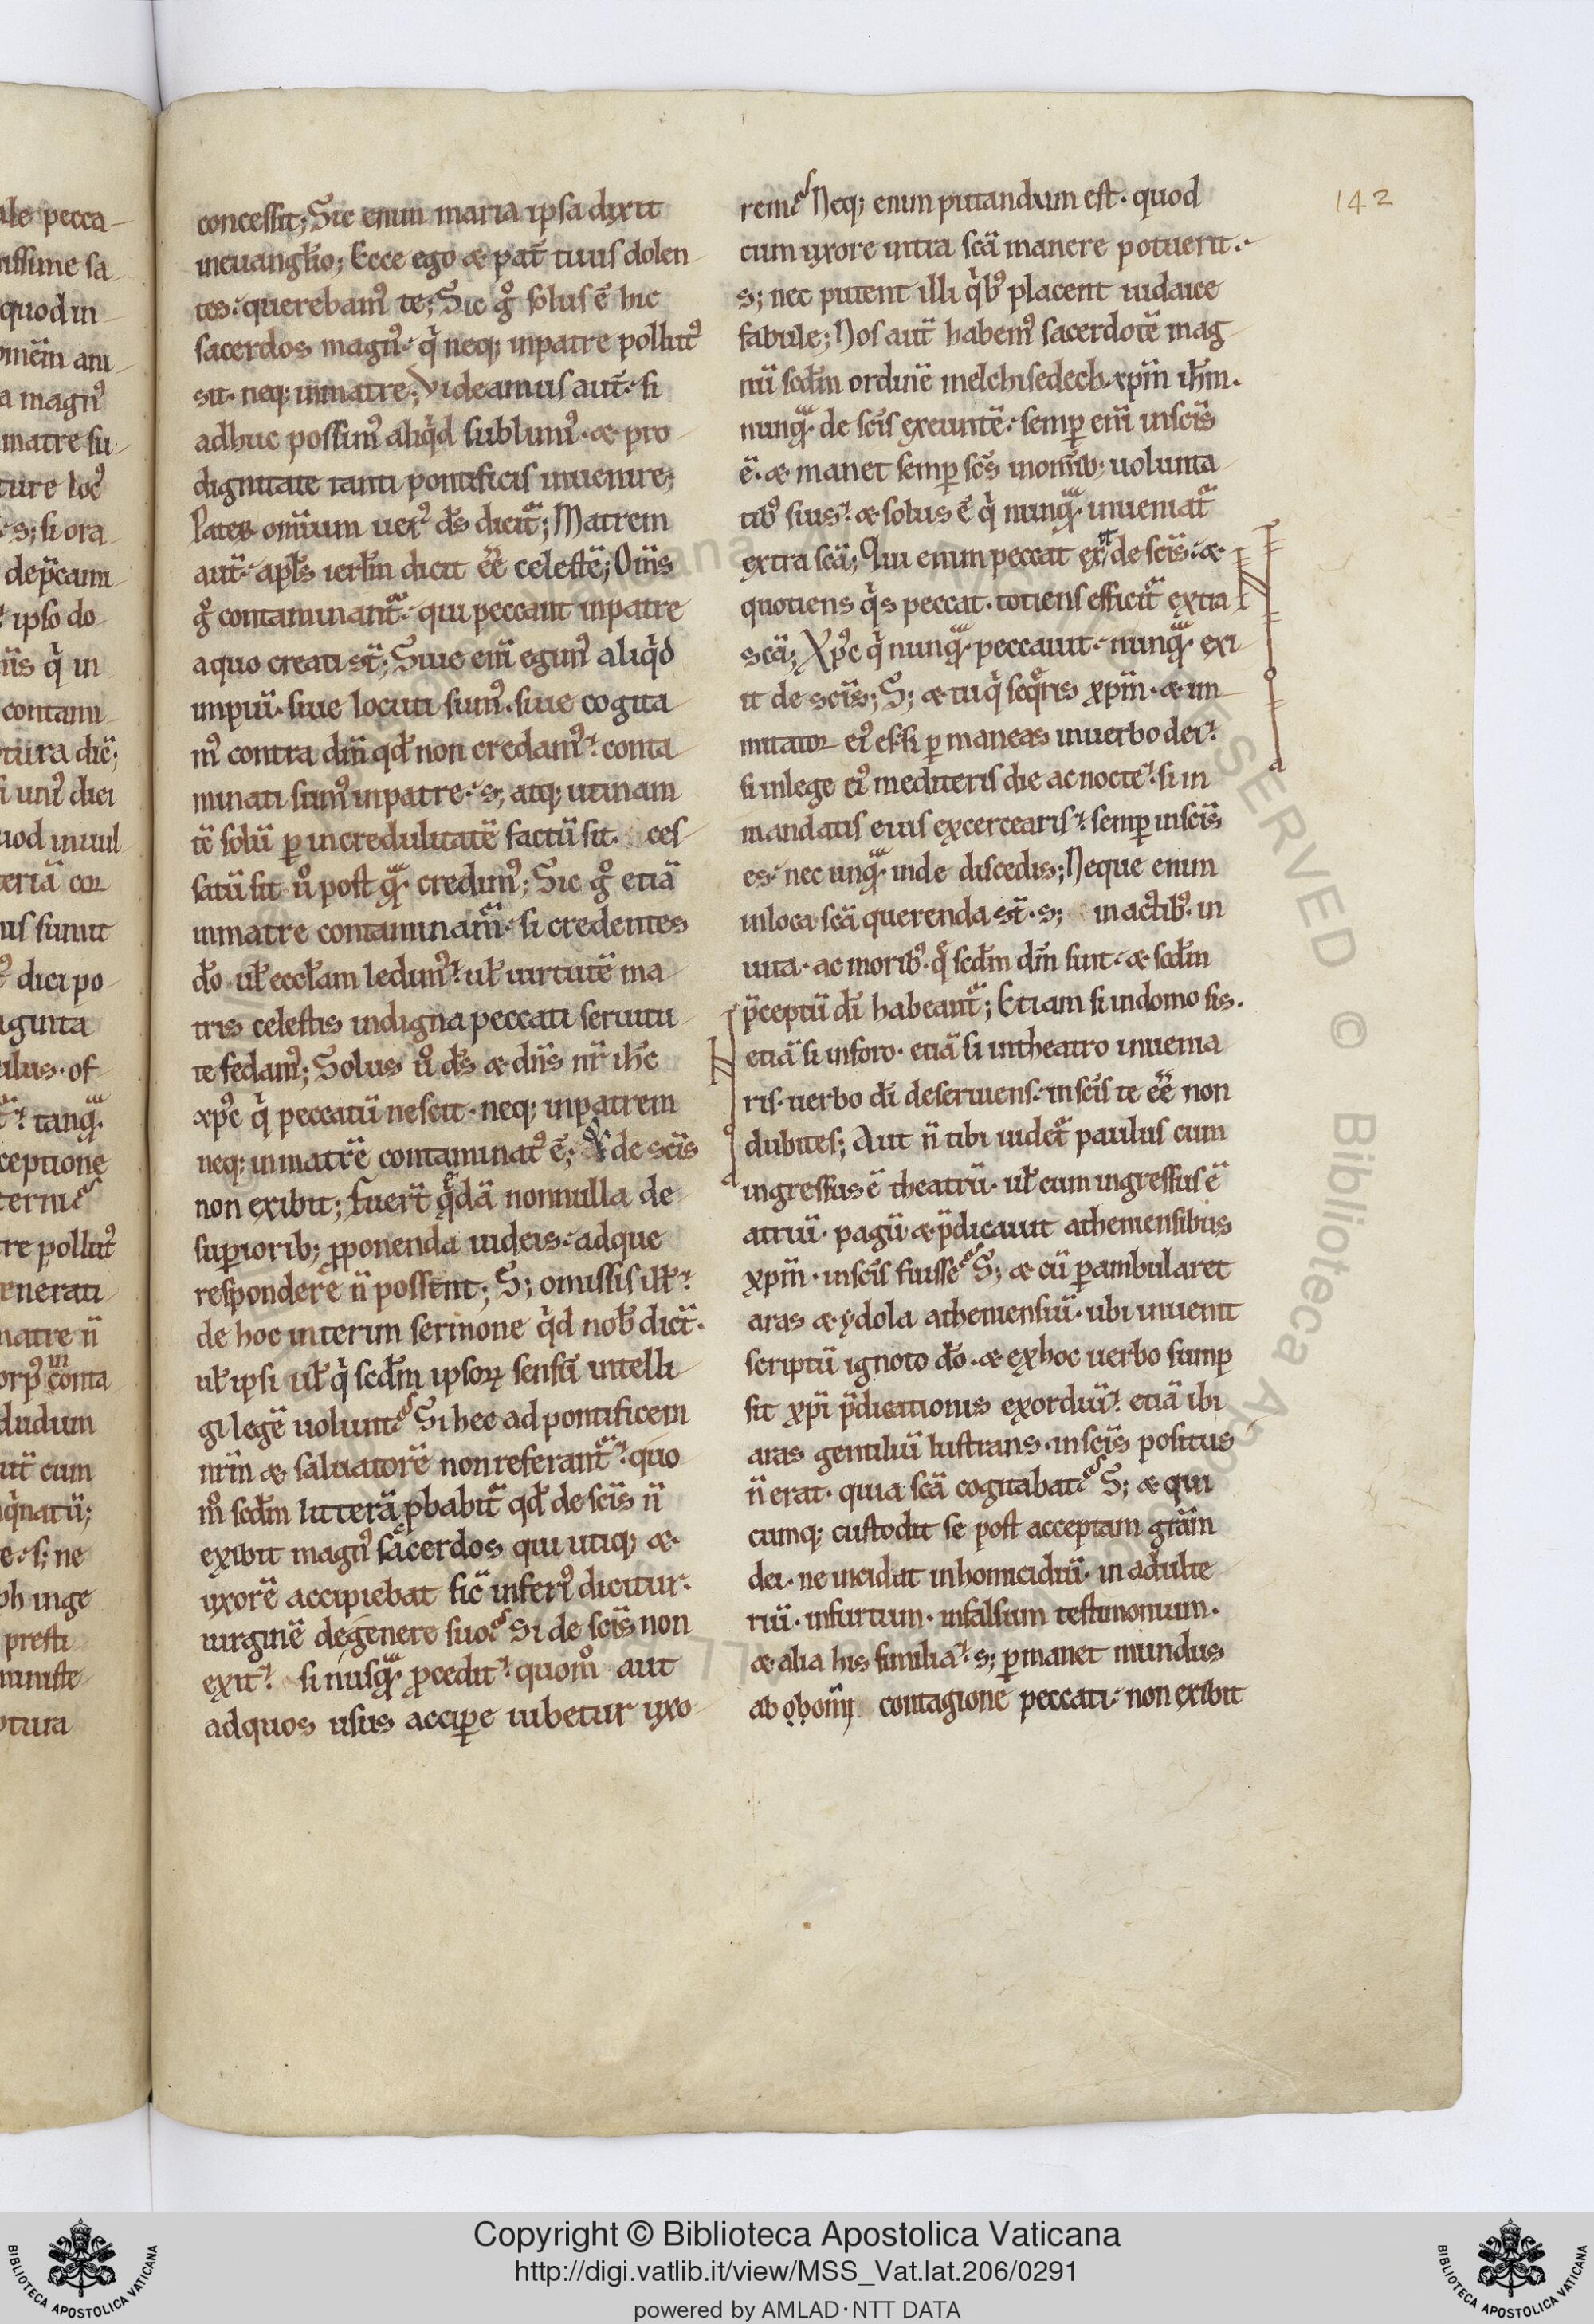 142
concessit; Sic enim maria ipsa dixit
in euangł̃io; Ecce ego & pat̃ tuus dolen
tes querebamꝰ te; Sic g̊ solus ẽ hic
sacerdos magnꝰ q̇ neq; inpatre pollutꝰ
sit. neq; inmatre; Videamus aut̃ si
adhuc possimꝰ aliq̇d sublimiꝰ & pro
dignitate tanti pontificis inuenire;
Pater omĩum uerꝰ d̃s dicit᷑; Matrem
aut̃ apl̃s ierl̃m dicit ẽẽ celestẽ; Om̃s
g̊ contaminant᷑ qui peccant inpatre
aquo creati st̃; Siue em̃ egimꝰ aliq̇d
impiũ. siue locuti sumꝰ. siue cogita
mꝰ contra dm̃ qd̃ non credamꝰ conta
minati sumꝰ inpatre. s; atq; utinam
tẽ solũ ꝑ incredulitatẽ factũ sit. ces
satũ sit ů post qᷓ credimꝰ; Sic g̊ etiã
inmatre contaminam᷑ si credentes
dõ ul̃ eccl̃am ledimꝰ ul̃ uirtutẽ ma
tris celestis indigna peccati seruitu
te fedamꝰ; Solus ů d̃s & dñs nr̃ ih̃c
xp̃c q̇ peccatũ nesciit. neq; inpatrem
neq; inmatrẽ contaminatꝰ ẽ; & de scĩs
non exibit; Fuert̃ q̇dã nonnulla de
suꝑiorib; ꝓponenda iudeis. adque
respondere ñ possent; S; omissis ill̃
de hoc interim sermone q̇d nob̃ dict̃.
ul̃ ipsi ul̃ q̇ scd̃m ipsoꝝ sensũ intelli
gi legẽ uolunt Si hec ad pontificem
nr̃m & saluatorẽ non referant᷑ quo
m̊ scd̃m litterã ꝓbabit᷑ qd̃ de scĩs ñ
exibit magnꝰ sacerdos qui utiq; &
uxorẽ accipiebat sic̃ inferiꝰ dicitur.
uirginẽ degenere suo Si de scĩs non
exit si nusqᷓ ꝓcedit quom̊ aut
adquos usus acciꝑe iubetur uxo
rem Neq; enim putandum est. quod
cum uxore intra scã manere potuerit.
s; nec putent illi q̇bꝰ placent iudaice
fabule; Nos aut̃ habemꝰ sacerdotẽ mag
nũ scd̃m ordinẽ melchisedech. xpm̃ ih̃m.
nunqᷓ de scĩs exeuntẽ. semꝑ em̃ inscĩs
ẽ. & manet semꝑ sc̃s inom̃ib; uolunta
tibꝰ suis. & solus ẽ q̇ nunqᷓ inueniat᷑
extra scã; Qui enim peccat exit de scĩs. &
quotiens q̇s peccat. totiens efficit᷑ extra
scã; Xp̃c q̇ nunqᷓ peccauit. nunqᷓ exi
it de scĩs; S; & tu q̇ seq̇ris xpm̃. & im
mitator eiꝰ es. si ꝑ maneas inuerbo dei
si inlege eiꝰ mediteris die ac nocte si in
mandatis eius excercearis semꝑ inscĩs
es. nec unqᷓ inde discedis; Neque enim
inloca scã querenda st̃. s; in actibꝰ. in
uita. ac moribꝰ. q̃ scd̃m dm̃ sint. & scd̃m
p̃ceptũ dĩ habeant᷑; Etiam si indomo sis.
etiã si inforo. etiã si intheatro inuenia
ris. uerbo dĩ deseruiens. inscĩs te ẽẽ non
dubites; Aut ñ tibi uidet᷑ paulus cum
ingressus ẽ theatrũ. ul̃ cum ingressus ẽ
atriũ. pagũ & p̃dicauit atheniensibus
xpm̃. inscĩs fuisse S; & cũ ꝑambularet
aras & ydola atheniensiũ. ubi inuenit
scriptũ ignoto dõ. & exhoc uerbo sump
sit xpĩ p̃dicationis exordiũ etiã ibi
aras gentiliũ lustrans. inscĩs positus
ñ erat. quia scã cogitabat S; & qui
cumq; custodit se post acceptam grãm
dei. ne incidat inhomicidiũ. in adulte
riũ. infurtum. infalsum testimonium.
& alia his similia s; ꝑmanet mundus
ab obom̃i contagione peccati. non exibit
Copyright © Biblioteca Apostolica Vaticana
http://digi.vatlib.it/view/MSS_Vat.lat.206/0291
powered by AMLAD·NTT DATA